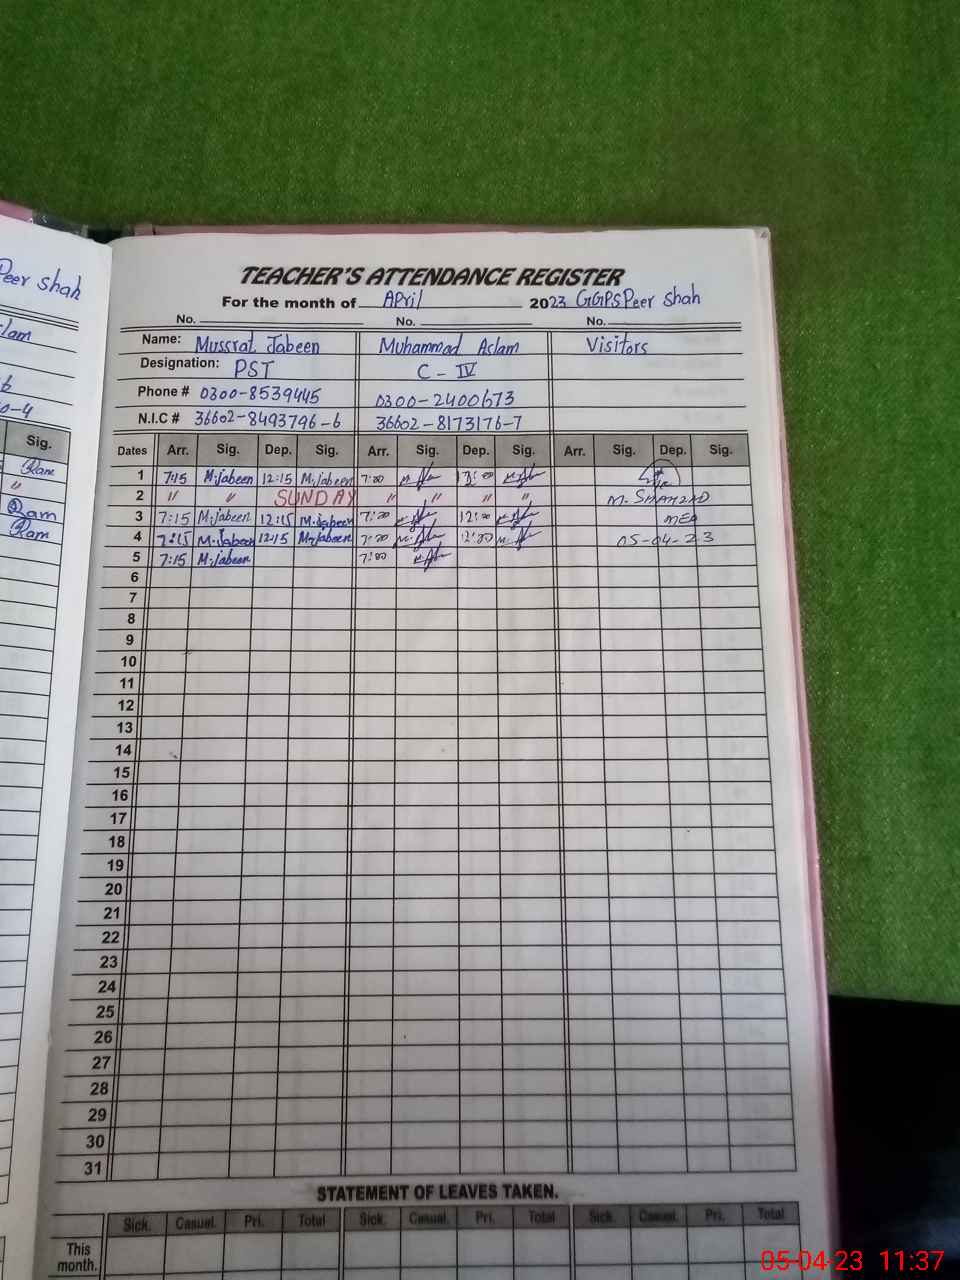 Peer Shah
Sig.
Ram
"
Ram
Ram
TEACHER'S ATTENDANCE REGISTER
For the month of April 2023 GGPS Peer Shah
No. No. No.
Name: Mussrat Jabeen Muhammad Aslam Visitors
Designation: PST C - IV
Phone # 0300-8539445 0300-2400673
N.I.C # 36602-8493796-6 36602-8173176-7
Dates Arr. Sig. Dep. Sig. Arr. Sig. Dep. Sig. Arr. Sig. Dep. Sig.
1 7:15 M.jabeen 12:15 M.jabeen 7:00
2 " " SUNDAY " " " " M. SHAHZAD
3 7:15 M.jabeen 12:15 M.jabeen 7:00 12:00 MEA
4 7:15 M.jabeen 12:15 M.jabeen 7:00 12:00 05-04-23
5 7:15 M.jabeen 7:00
6
7
8
9
10
11
12
13
14
15
16
17
18
19
20
21
22
23
24
25
26
27
28
29
30
31
STATEMENT OF LEAVES TAKEN.
Sick. Casual. Pri. Total Sick. Casual. Pri. Total Sick. Casual. Pri. Total
This
month.
05-04-23 11:37